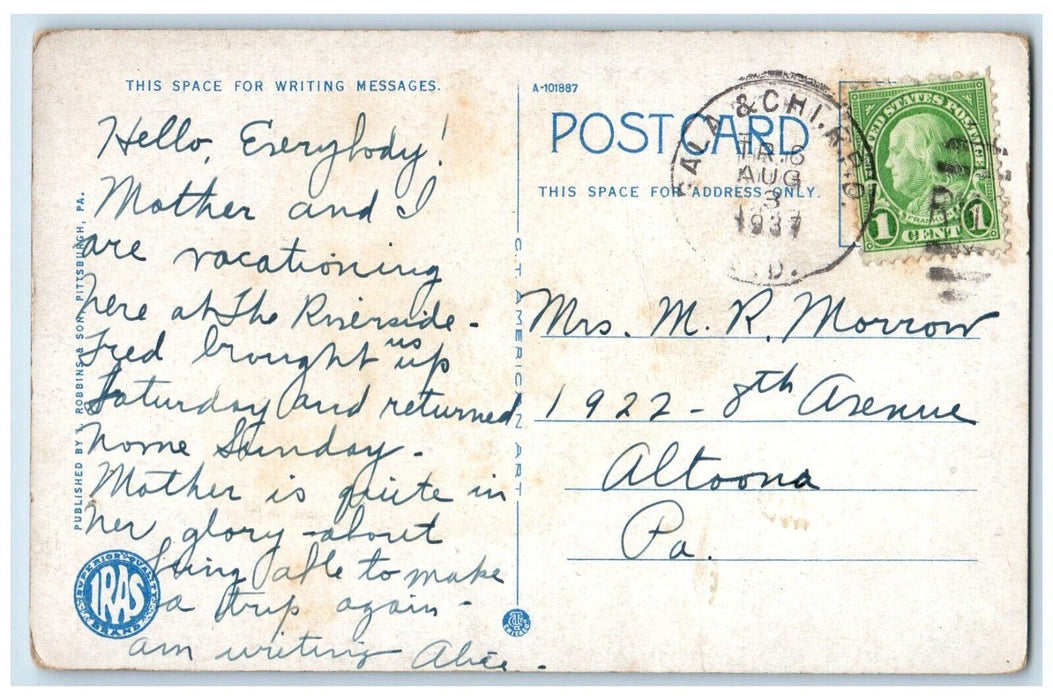 THIS SPACE FOR WRITING MESSAGES.
Hello, Everybody!
Mother and I
are vacationing
here at The Riverside -
Fred brought us up
Saturday and returned
home Sunday -
Mother is quite in
her glory - about
being able to make
a trip again -
am writing Alice -
PUBLISHED BY I. ROBBINS & SON, PITTSBURGH, PA.
SUPERIOR QUALITY
IRAS
BRAND
C.T. AMERICAN ART
CHICAGO
A-101887
POST CARD
THIS SPACE FOR ADDRESS ONLY.
& CHI. R.P.O.
TR. 8
AUG
3
1937
UNITED STATES POSTAGE
FRANKLIN
1 CENT 1
Mrs. M. R. Morrow
1922 - 8th Avenue
Altoona
Pa.